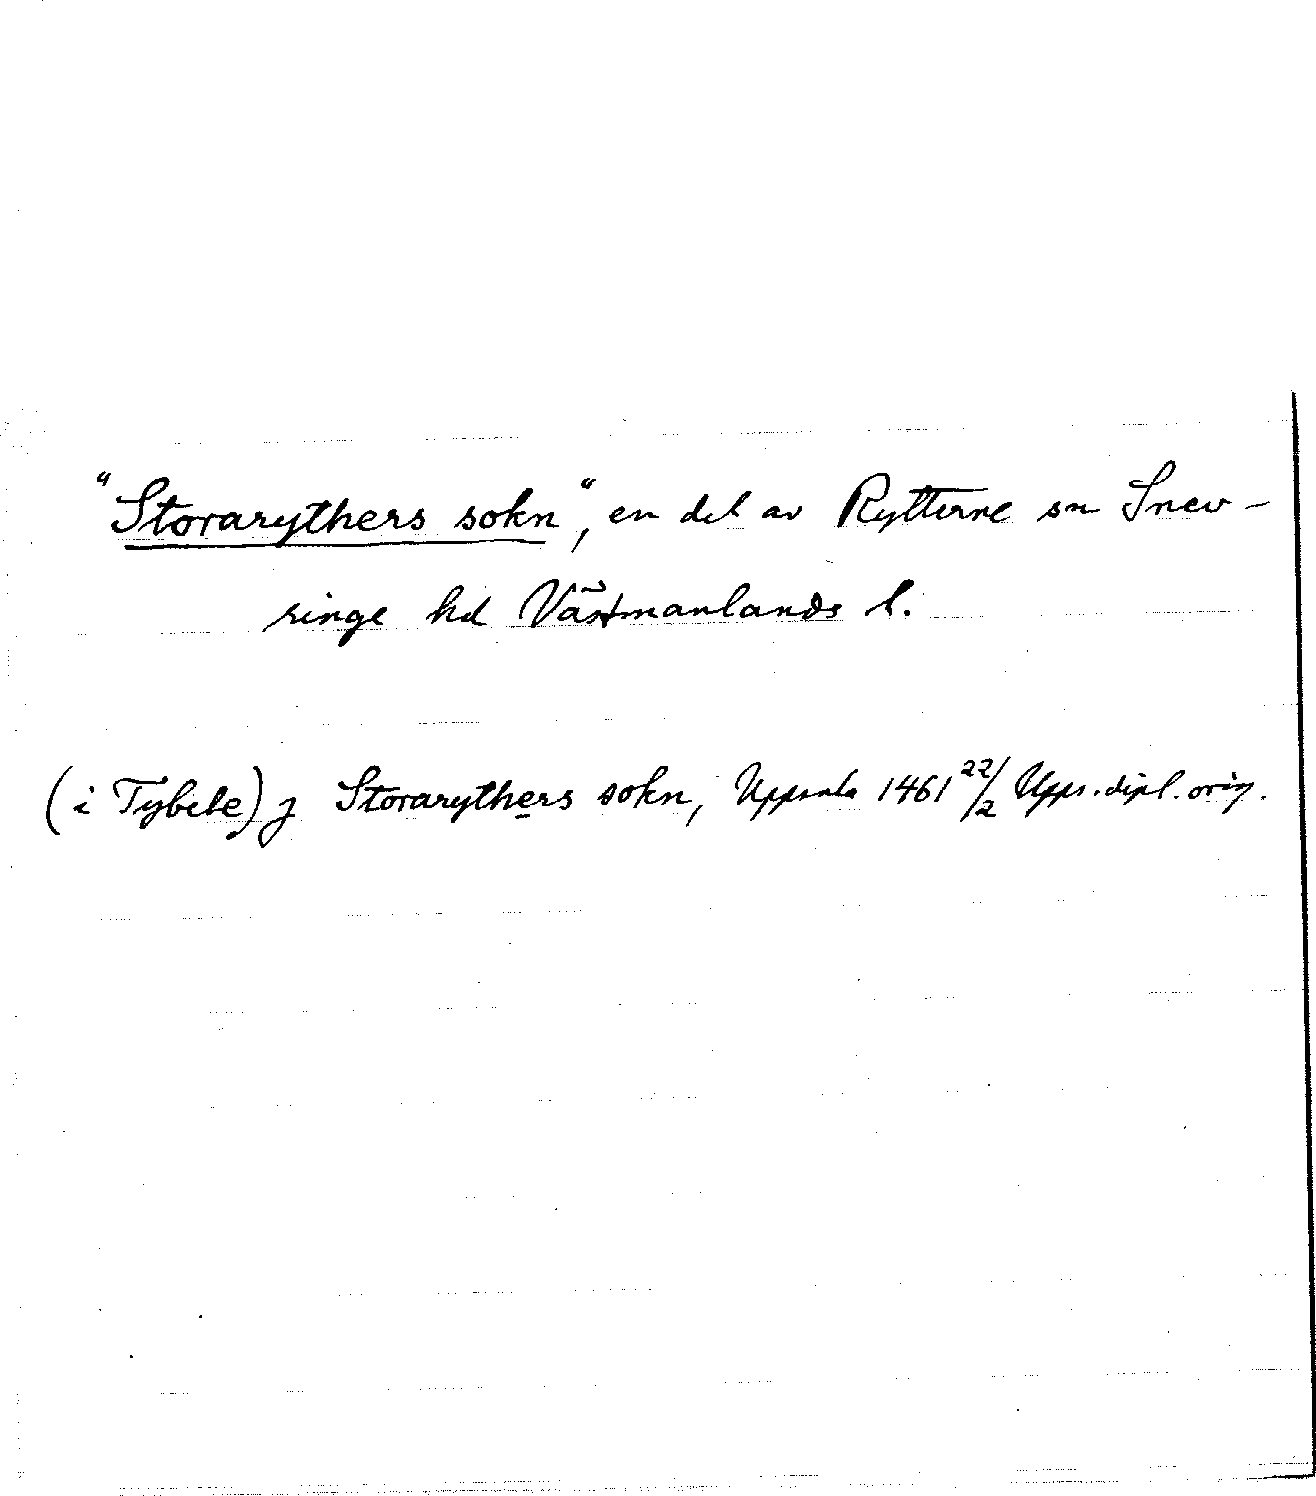 "Storarythers sokn", en del av Rytterne sn Snev-
ringe hd Västmanlands l.
(i Tybele) j Storarythers sokn, Uppsala 1461 22/2 Upps. dipl. orig.